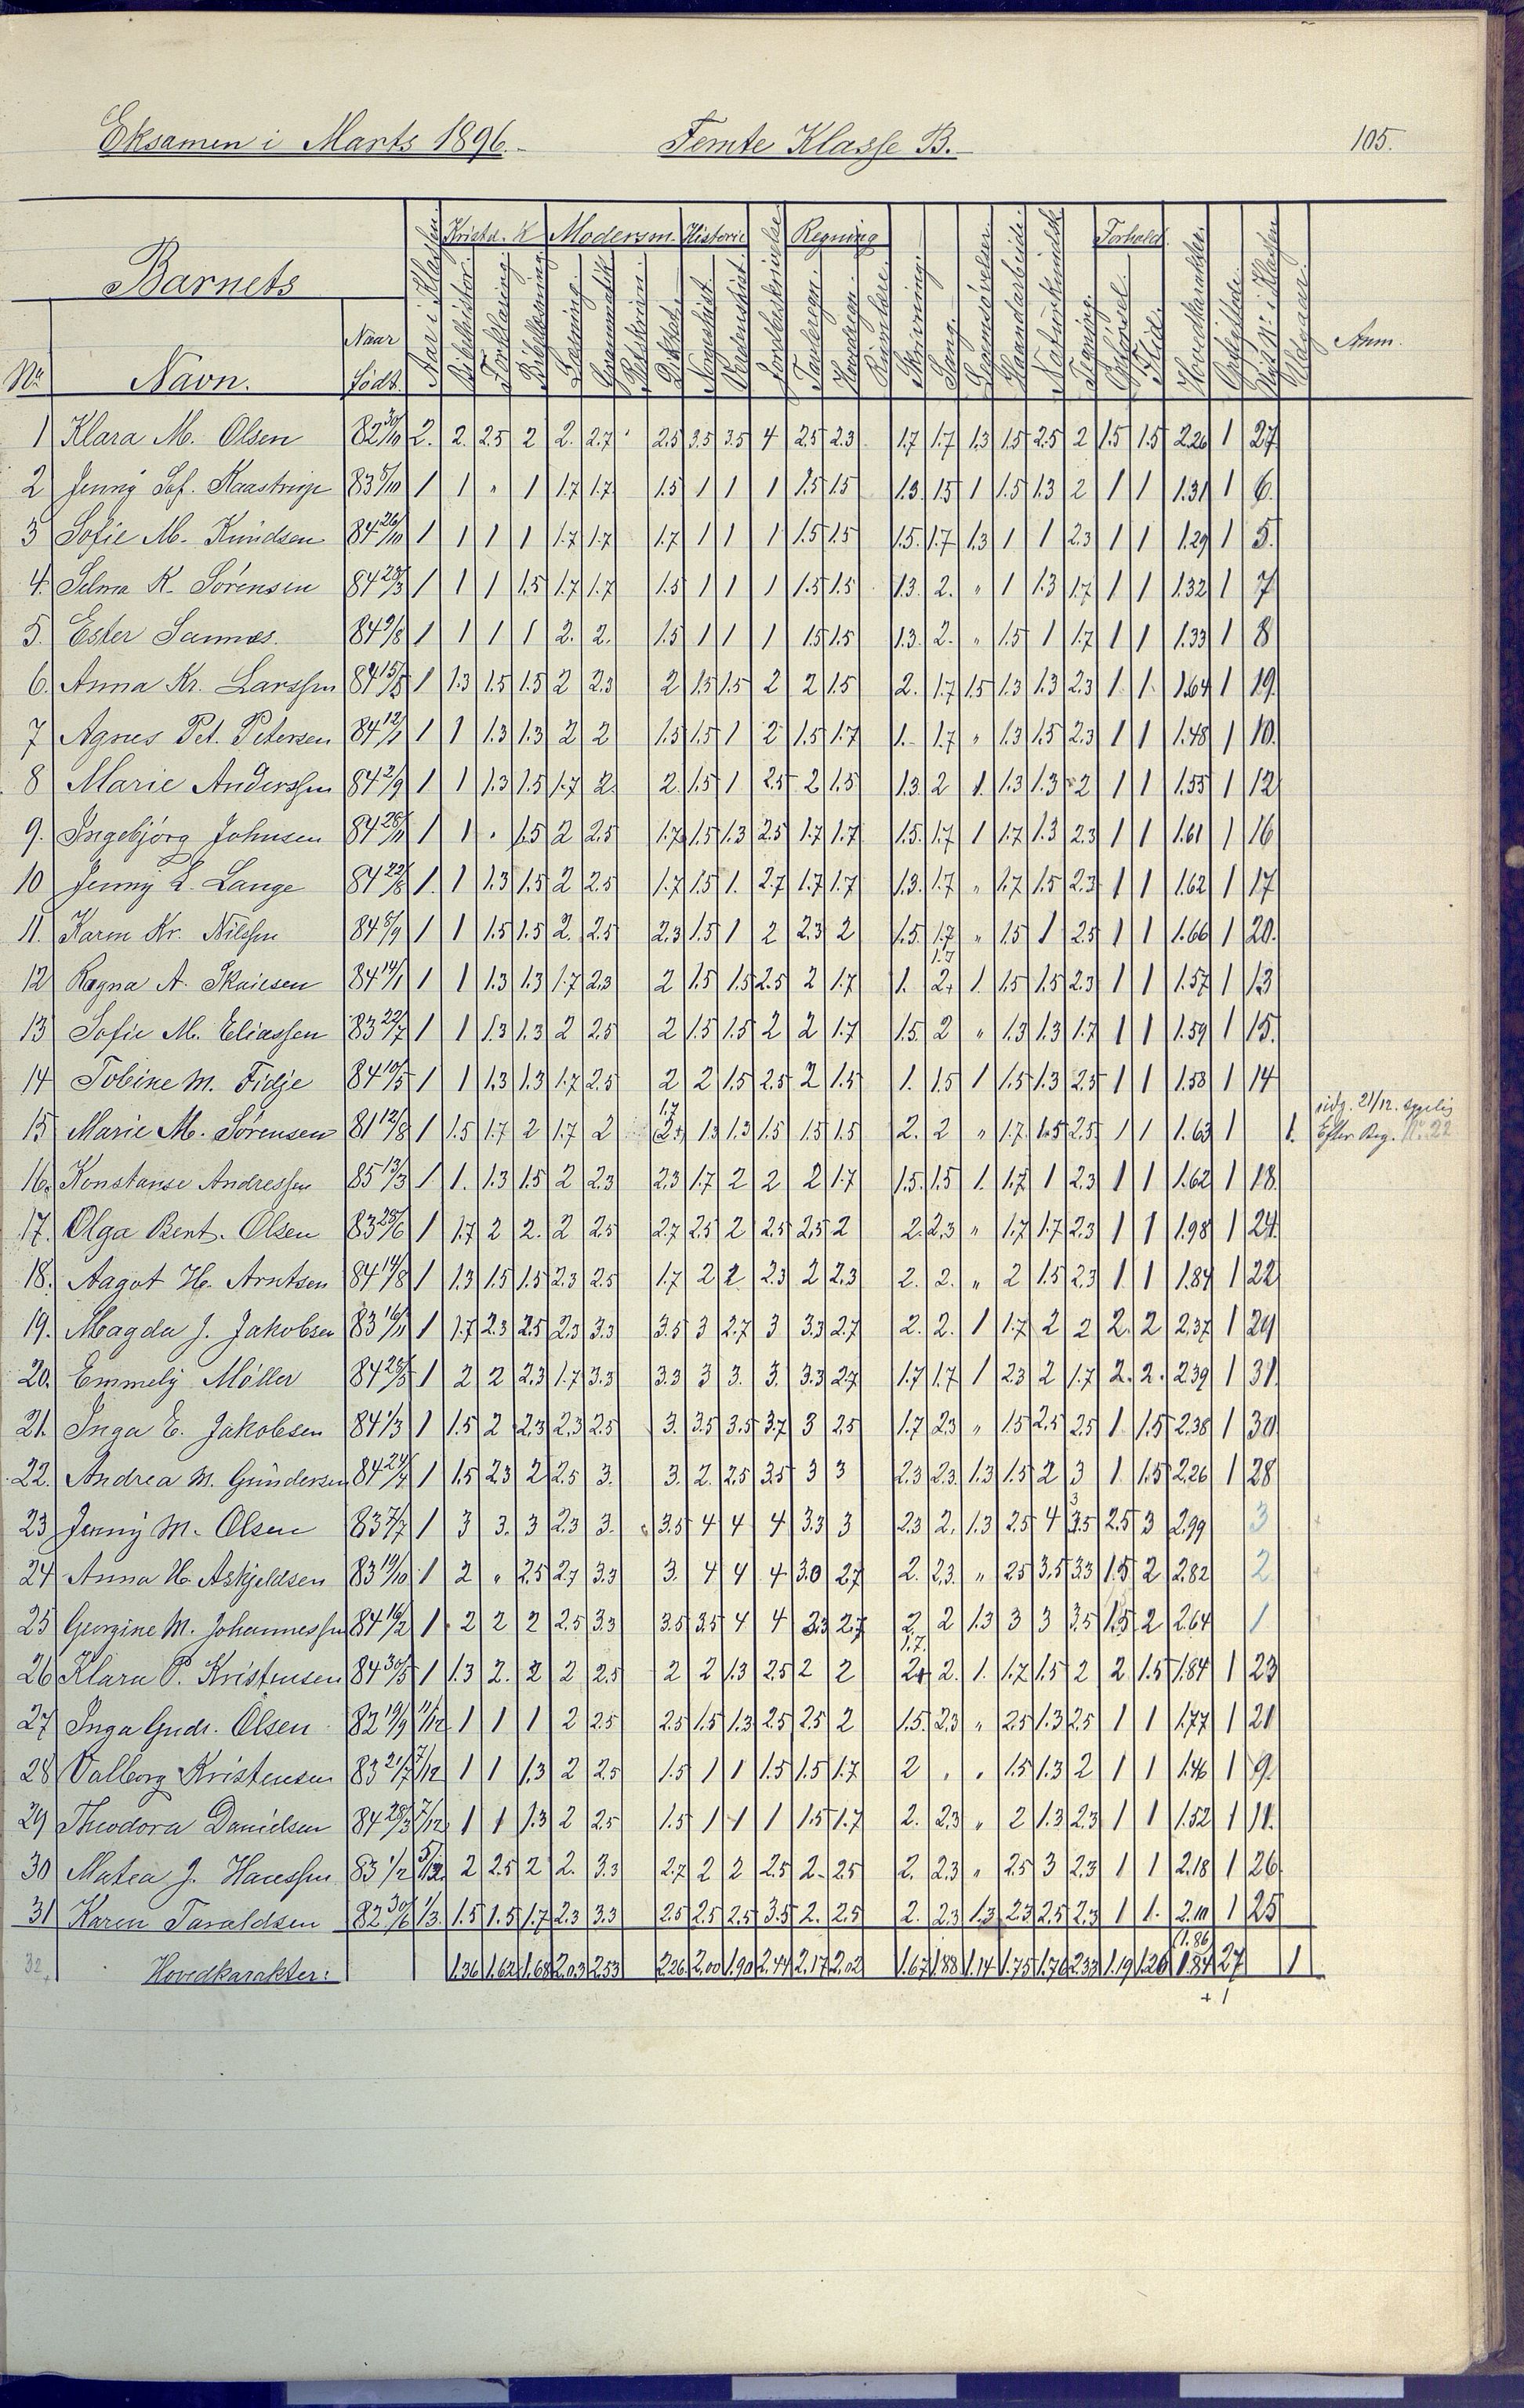 Eksamen i Marts 1896.- Femte Klasse B.- 105.
Barnets
Kristd. K Modersm. Historie Regning Forhold.
No Navn. Naar født. Aar i Klassen. Bibelhistor. Forklaring. Bibellæsning. Læsning. Grammatik Retskrivn. Diktat. Norgeshist. Verdenshist. Jordbeskrivelse Tavleregn. Hovedregn. Skrivning. Sang. Legemsøvelser. Haandarbeide. Naturkundsk. Tegning. Opførsel. Flid. Hovedkarakter. Opflyttede. i Klassen Udgaar Anm.
1 Klara M. Olsen 82 30/10 2. 2. 2.5 2 2. 2.7 2.5 3.5 3.5 4 2.5 2.3 1.7 1.7 1.3 1.5 2.5 2 1.5 1.5 2.26 1 27
2 Jenny Sof. Kaastrup 83 5/10 1 1 " 1 1.7 1.7 1.5 1 1 1 1.5 1.5 1.3. 1.5 1 1.5 1.3 2 1 1 1.31 1 6.
3 Sofie M. Knudsen 84 26/10 1 1 1 1 1.7 1.7 1.7 1 1 1 1.5 1.5 1.5. 1.7 1.3 1 1 2.3 1 1 1.29 1 5.
4. Selma K. Sørensen 84 25/3 1 1 1 1.5 1.7 1.7 1.5 1 1 1 1.5 1.5 1.3. 2. " 1 1.3 1.7 1 1 1.32 1 7
5. Ester Sannæs. 84 9/8 1 1 1 1 2. 2. 1.5 1 1 1 1.5 1.5 1.3. 2. " 1.5 1 1.7 1 1 1.33 1 8
6. Anna Kr. Larssen 84 15/5 1 1.3 1.5 1.5 2 2.3 2 1.5 1.5 2 2 1.5 2. 1.7 1.5 1.3 1.3 2.3 1 1. 1.64 1 19.
7 Agnes Pet. Petersen 84 12/1 1 1 1.3 1.3 2 2 1.5 1.5 1 2 1.5 1.7 1. 1.7 " 1.3 1.5 2.3 1 1 1.48 1 10.
8 Marie Anderssen 84 2/9 1 1 1.3 1.5 1.7 2. 2. 1.5 1 2.5 2 1.5 1.3. 2 1. 1.3 1.3 2 1 1 1.55 1 12
9. Ingebjörg Johnsen 84 28/11 1 1 " 1.5 2 2.5 1.7 1.5 1.3 2.5 1.7 1.7 1.5. 1.7 1 1.7 1.3 2.3 1 1 1.61 1 16
10 Jenny L. Lange 84 22/8 1. 1 1.3 1.5 2 2.5 1.7 1.5 1. 2.7 1.7 1.7 1.3. 1.7 " 1.7 1.5 2.3 1 1 1.62 1 17
11. Karen Kr. Nilssen 84 5/9 1 1 1.5 1.5 2. 2.5 2.3 1.5 1 2 2.3 2 1.5. 1.7 " 1.5 1 2.5 1 1 1.66 1 20.
1.7
12 Ragna A. Skaiesen 84 14/1 1 1 1.3 1.3 1.7 2.3 2 1.5 1.5 2.5 2 1.7 1. 2+ 1. 1.5 1.5 2.3 1 1 1.57 1 13
13 Sofie M. Eliassen 83 22/7 1 1 1.3 1.3 2 2.5 2 1.5 1.5 2 2 1.7 1.5. 2 " 1.3 1.3 1.7 1 1 1.59 1 15.
14 Tobine M. Fidje 84 10/5 1 1 1.3 1.3 1.7 2.5 2 2 1.5 2.5 2 1.5 1. 1.5 1 1.5 1.3 2.5 1 1 1.58 1 14
1.7 21/12.
15 Marie M. Sørensen 81 12/8 1 1.5 1.7 2 1.7 2 2+ 1.3 1.3 1.5 1.5 1.5 2. 2 " 1.7 1.5 2.5 1 1 1.63 1 1. Efter Beg. No 22
16. Konstanse Andressen 85 13/3 1 1. 1.3 1.5 2 2.3 2.3 1.7 2 2 2 1.7 1.5. 1.5 1. 1.7 1 2.3 1 1 1.62 1 18.
17. Olga Bent. Olsen 83 25/6 1 1.7 2 2. 2 2.5 2.7 2.5 2 2.5 2.5 2 2. 2.3 " 1.7 1.7 2.3 1 1 1.98 1 24.
18. Aagot H. Arntsen 84 14/8 1 1.3 1.5 1.5 2.3 2.5 1.7 2 2 2.3 2 2.3 2. 2. " 2 1.5 2.3 1 1 1.84 1 22
19. Magda J. Jakobsen 83 16/11 1 1.7 2.3 2.5 2.3 3.3 3.5 3 2.7 3 3.3 2.7 2. 2. 1 1.7 2 2 2. 2 2.37 1 29
20. Emmely Møller 84 25/5 1 2 2 2.3 1.7 3.3 3.3 3 3. 3. 3.3 2.7 1.7 1.7 1 2.3 2 1.7 2. 2. 2.39 1 31.
21. Inga E. Jakobsen 84 1/3 1 1.5 2 2.3 2.3 2.5 3. 3.5 3.5 3.7 3 2.5 1.7 2.3 " 1.5 2.5 2.5 1 1.5 2.38 1 30.
22. Andrea M. Gundersen 84 24/4 1 1.5 2.3 2 2.5 3. 3. 2. 2.5 3.5 3 3 2.3 2.3. 1.3 1.5 2 3 1. 1.5 2.26 1 28
3
23 Jenny M. Olsen 83 7/7 1 3 3. 3 2.3 3. 3.5 4 4 4 3.3 3 2.3 2. 1.3 2.5 4 3.5 2.5 3 2.99 3
24 Anna H. Askjeldsen 83 19/10 1 2 " 2.5 2.7 3.3 3. 4 4 4 3.0 2.7 2. 2.3. " 2.5 3.5 3.3 1.5 2 2.82 2
25 Georgine M. Johannessen 84 16/2 1 2 2 2 2.5 3.3 3.5 3.5 4 4 3.3 2.7 2. 2 1.3 3 3 3.5 1.5 2 2.64 1
1.7
26 Klara P. Kristensen 84 30/5 1 1.3 2. 2 2 2.5 2 2 1.3 2.5 2 2 2+ 2. 1. 1.7 1.5 2 2 1.5 1.84 1 23
27 Inga Gudr. Olsen 82 19/9 11/12 1 1 1 2 2.5 2.5 1.5 1.3 2.5 2.5 2 1.5. 2.3 " 2.5 1.3 2.5 1 1 1.77 1 21
28 Valborg Kristensen 83 21/7 7/12 1 1 1.3 2 2.5 1.5 1 1 1.5 1.5 1.7 2 " " 1.5 1.3 2 1 1 1.46 1 9.
29 Theodora Danielsen 84 28/3 7/12 1 1 1.3 2 2.5 1.5 1 1 1 1.5 1.7 2. 2.3 " 2 1.3 2.3 1 1 1.52 1 11.
30 Matea J. Hanessen 83 1/2 5/12 2 2.5 2 2. 3.3 2.7 2 2 2.5 2 2.5 2. 2.3 " 2.5 3 2.3 1 1 2.18 1 26
31 Karen Taraldsen 82 30/6 1/3. 1.5 1.5 1.7 2.3 3.3 2.5 2.5 2.5 3.5 2. 2.5 2. 2.3 1.3 2.3 2.5 2.3 1 1. 2.10 1 25
(1.86
32 Hovedkarakter: 1.36 1.62 1.68 2.03 2.53 2.26 2.00 1.90 2.44 2.17 2.02 1.67 1.88 1.14 1.75 1.76 2.33 1.19 1.20 1.84 27 1
+ 1